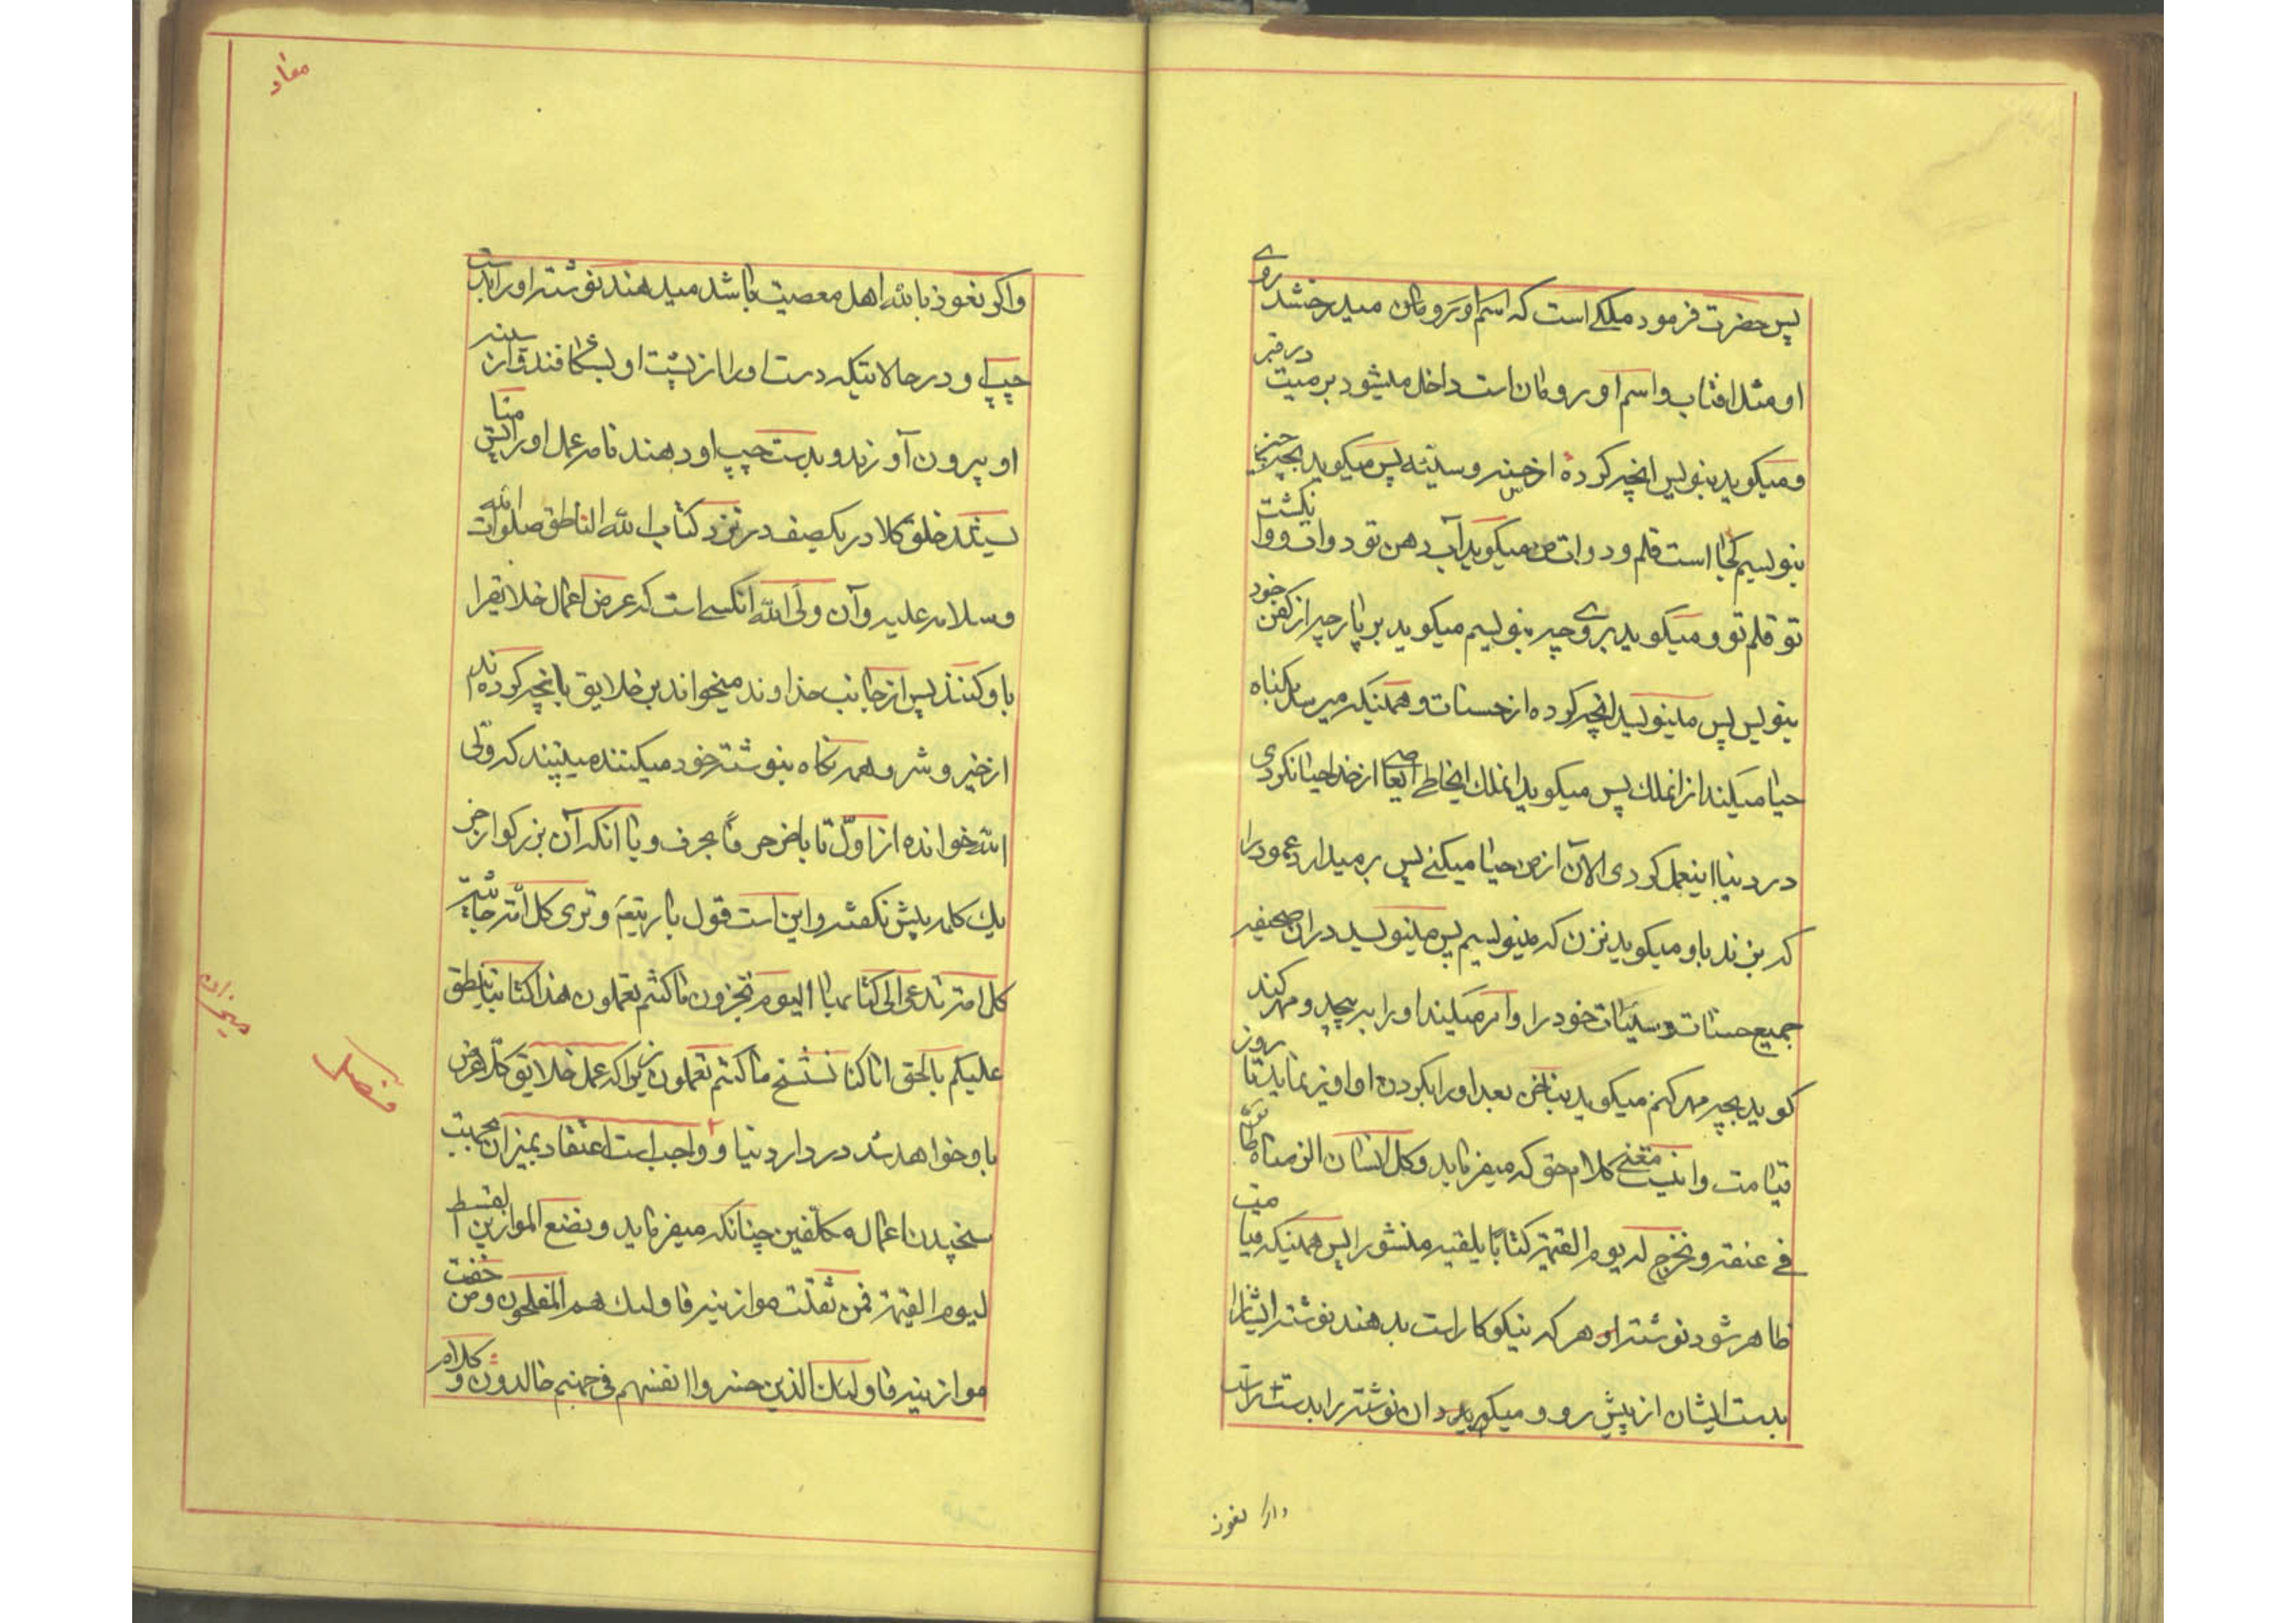 پس حضرت فرمود ملکی است که اسم او رومان میدرخشد روی
او مثل افتاب و اسم او رومان است داخل میشود بر میت در قبر
و میکوید بنویس انچه کردهٔ از حسنه و سیئه پس میکوید بچه چیز
بنویسم کجا است قلم و دوات من میکوید آب دهن تو دوات و انکشت
تو قلم تو و میکوید بروی چه بنویسم میکوید بر پارچه از کفن خود
بنویس پس مینویسد انچه کرده از حسنات و همینکه میرسد بکناه
حیا میکند از انملک پس میکوید انملک ایخاطی ایا از خدا حیا نکردی
در دنیا اینعمل کردی الآن از من حیا میکنی پس برمیدارد عمود را
که بزند باو میکوید نزن که مینویسم پس مینویسد دران صحیفه
جمیع حسنات و سیئات خود را و امر میکند او را بپیچد و مهر کند
کوید بچه مهر کنم میکوید بناخن بعد او را بکردن او اویز نماید تا روز
قیامت و اینست معنی کلام حق که میفرماید و کل انسان الزمناه طائره
فی عنقه و نخرج له یوم القیمة کتابًا یلقیه منشورا پس همینکه قیامت
ظاهر شود نوشته او هر که نیکوکار است بدهند نوشته ایشانرا
بدست ایشان از پیش رو و میکیرد ان نوشته را بدست راست
واکر نعوذ
معاد
واکر نعوذ بالله اهل معصیت باشد میدهند نوشته او را بدست
چپ او در حالاتیکه درست او را از پشت او بشکافند و از سینه
او بیرون آورند و بدست چپ او دهند نامه عمل او را پس منا
یستند خلق کلا در یکصف در نزد کتاب الله الناطق صلوات الله
و سلامه علیه و آن ولی الله انکسی است که عرض اعمال خلایقرا
باو کنند پس از جانب خداوند میخواند بر خلایق بانچه کرده‌اند
از خیر و شر و همه نکاه بنوشته خود میکنند میبینند که ولی
الله خوانده از اول تا باخر حرفًا بحرف و با انکه آن بزرکوار جز
یک کلمه بیش نکفته و این است قول باریتعٰم و تری کل أمة جاثیة
کل امة تدعی الی کتابها الیوم تجزون ما کنتم تعملون هذا کتابنا ینطق
علیکم بالحق انا کنا نستنسخ ما کنتم تعملون زیرا که عمل خلایق کلّا عرض
باو خواهد شد در دار دنیا و واجب است اعتقاد بمیزان بجهت
سنجیدن اعمال مکلّفین چنانکه میفرماید و نضع الموازین القسط
لیوم القیمة فمن ثقلت موازینه فاولئک هم المفلحون و من خفت
موازینه فاولئک الذین خسروا انفسهم فی جهنم خالدون و کلام
میزان
فصل